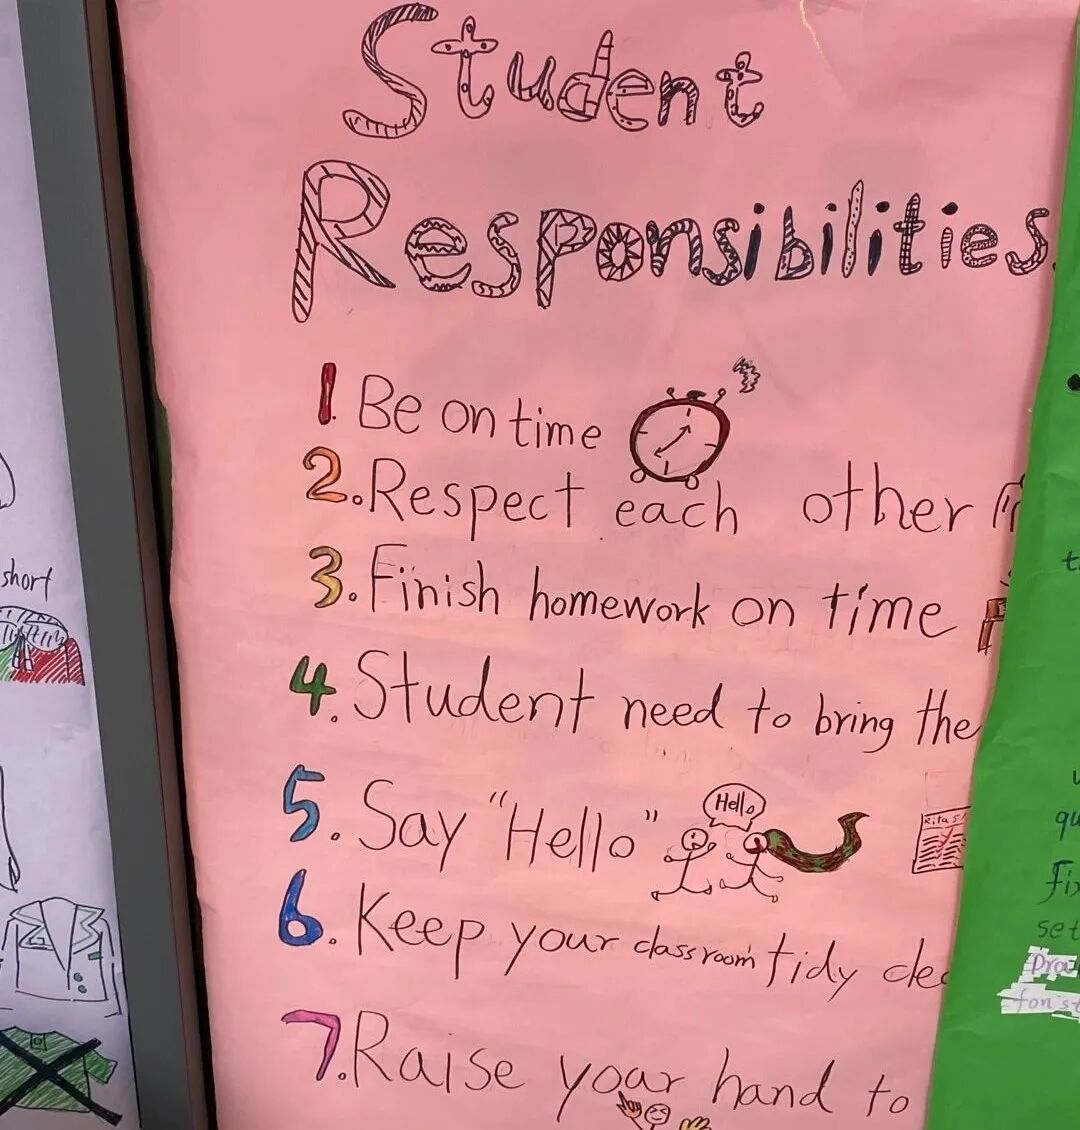 Student
Responsibilities.
1. Be on time
2. Respect each other
3. Finish homework on time
4. Student need to bring the
5. Say "Hello"
Hello
6. Keep your classroom tidy
7. Raise your hand to
short